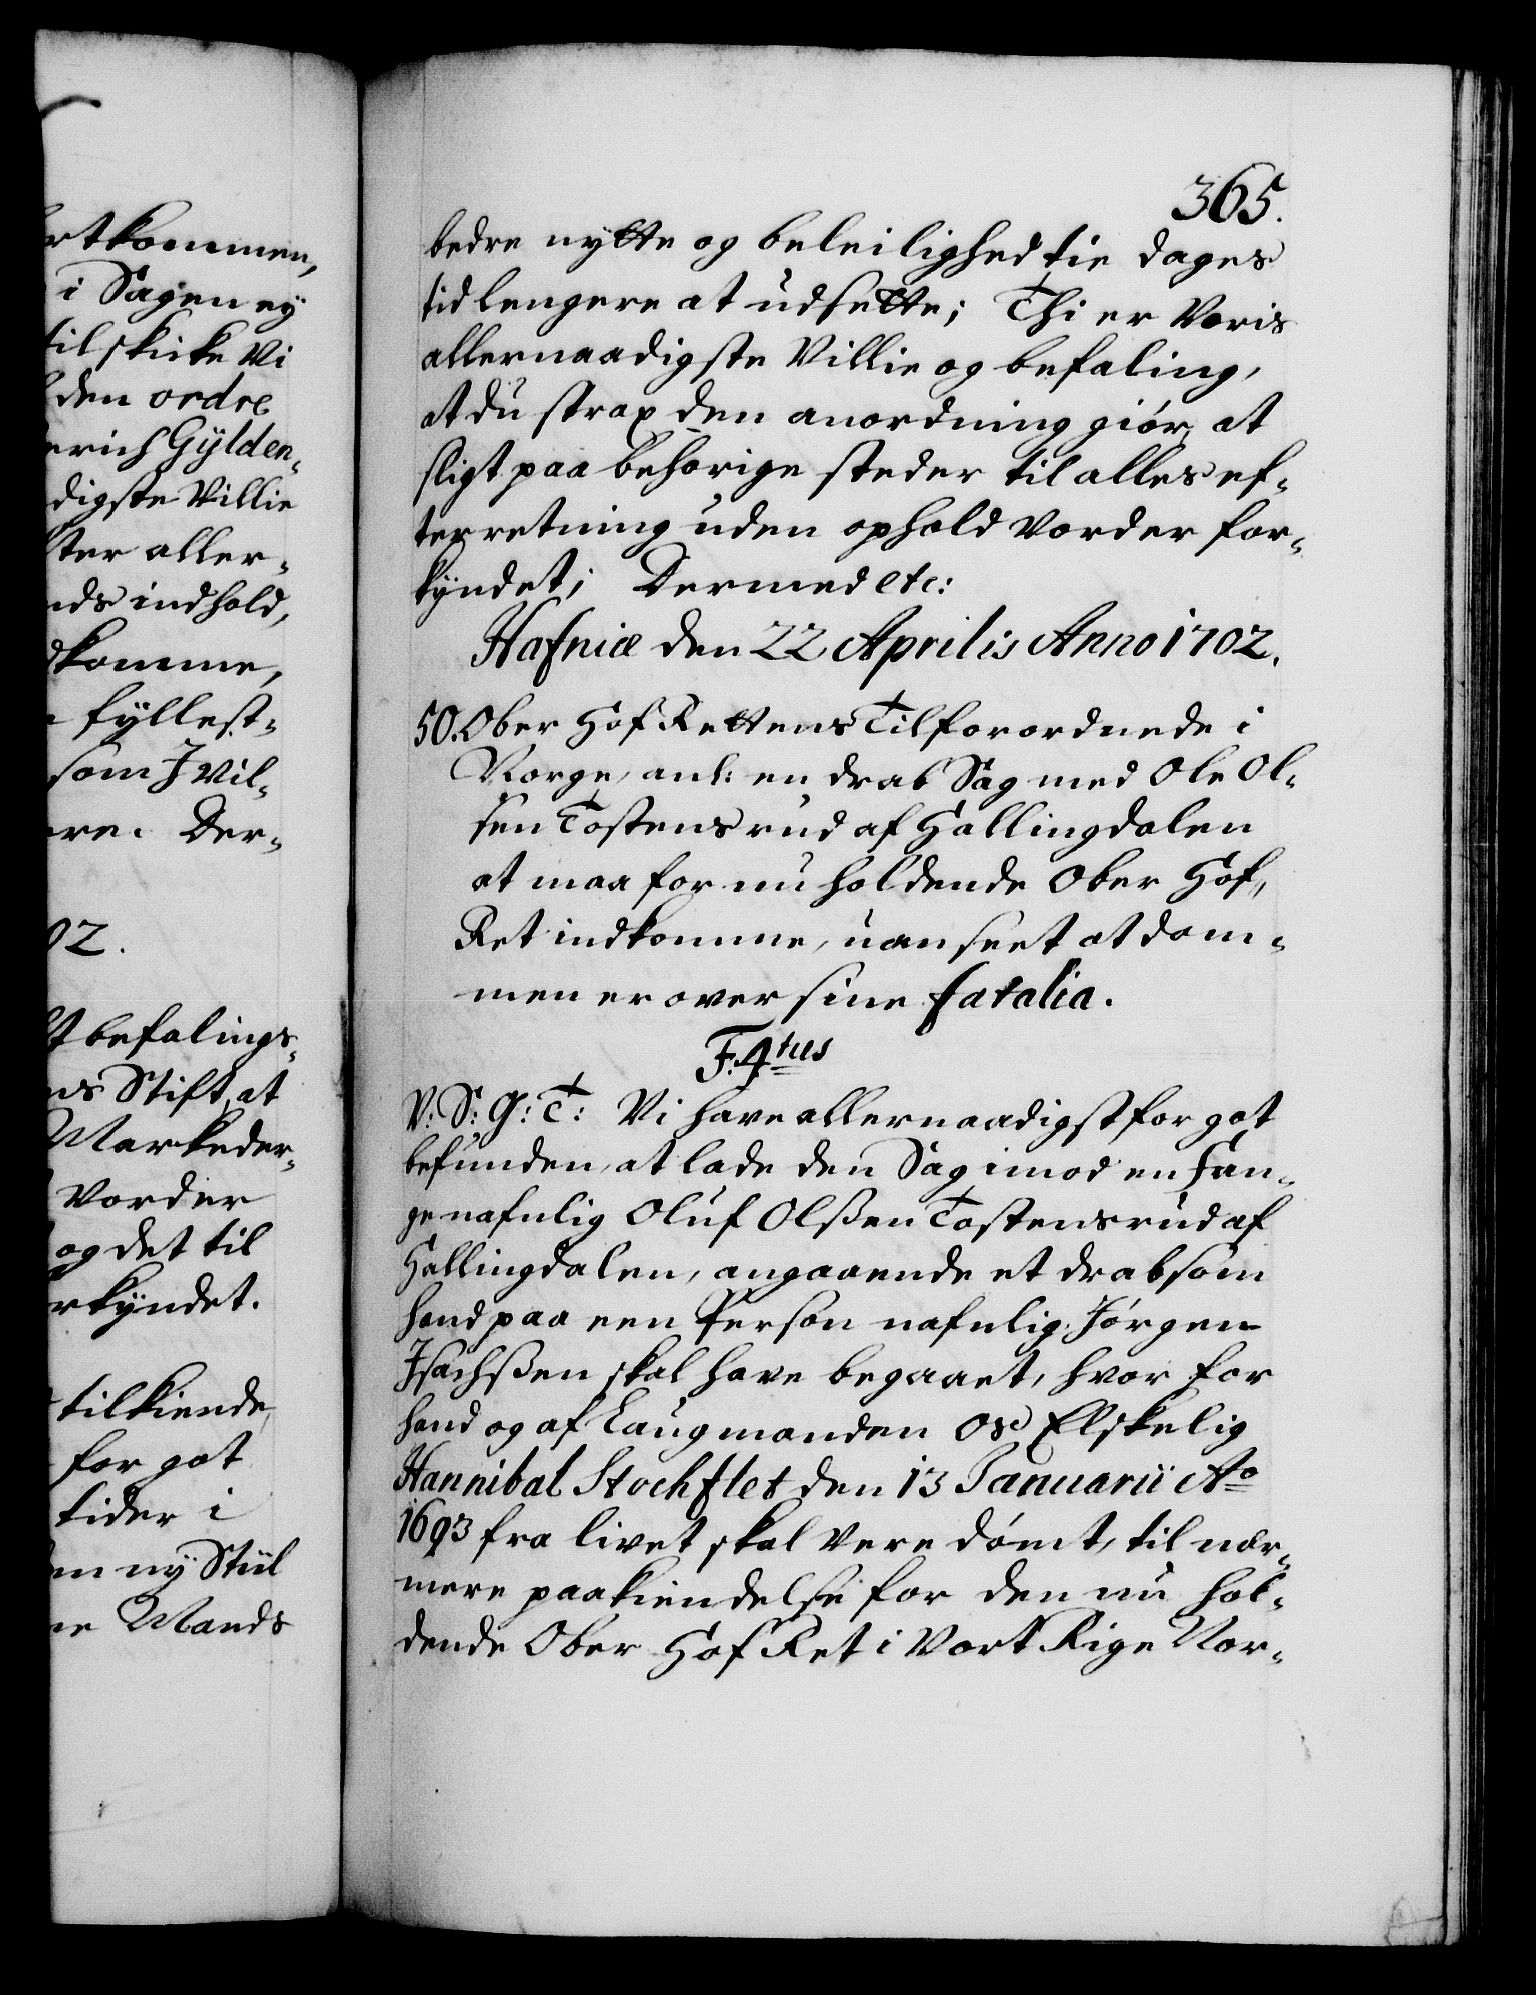 rtkommen,
i Sagen ey
til skicke Vi
den ordre
erich Gÿlden¬
digste Villie
ter aller¬
nds indhold,
dkomme,
fyllest¬
som J vil¬
ere. Der¬
02.
t befalings¬
ns Stift, at
Markeder¬
vorder
og det til
rkyndet.
tilkiende,
for got
tider i
en ny Stiil
ne Mands
365.
bedre nytte og beleilighed tie dages
tid lengere at udsette; Thi er Voris
allernaadigste Villie og befaling,
at du strax den anordning giør, at
sligt paa behørige steder til alles ef¬
terretning uden ophold vorder for¬
kyndet; Dermed etc:
Hafniæ den 22 Aprilis Anno 1702.
50. Ober Hof Rettens Tilforordnede i
Norge, anl: en drab Sag med Ole Ol¬
sen Tostensrud af Hallingdalen
at maa for nu holdende Ober Hof¬
Ret indkomme, uanseet at dom¬
men er over sine fatalia.
F. 4tus
V: S: G: T: Vi have allernaadigst for got
befunden, at lade den Sag imod en Fan¬
ge nafnlig Oluf Olsßen Tostensrud af
Hallingdalen, angaaende et drab som
hand paa een Person nafnlig Jørgen
Isachsßen skal have begaaet, hvor for
hand og af Laugmanden Os Elskelig
Hannibal Stochflet den 13 Januarii Ao
1693 fra livet skal vere dømt, til nær¬
mere paakiendelse for den nu hol¬
dende Ober Hof Ret i Vort Rige Nor¬